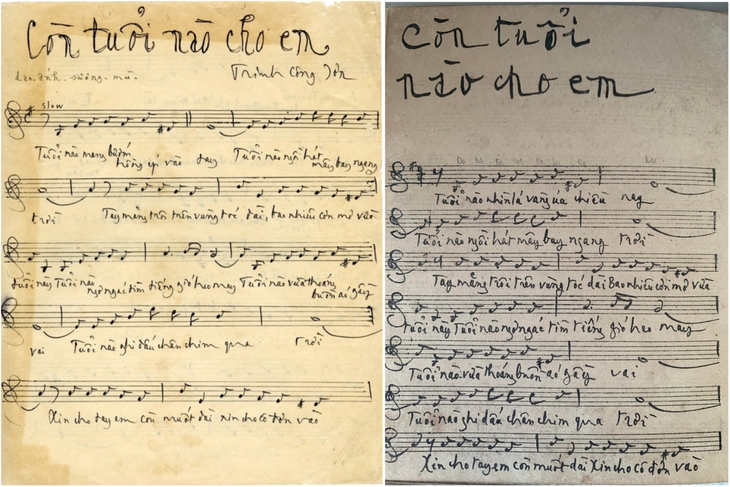 Còn tuổi nào cho em
Trịnh Công Sơn
slow
Tuổi nào mang buồn
hồng ghi vào đây Tuổi nào ngồi hát
mây bay ngang
trời Tay măng trôi trên vùng tóc dài, bao nhiêu cơn mơ vào
tuổi này Tuổi nào
ngơ ngác tìm tiếng gió heo may Tuổi nào vừa thoáng
buồn áo gầy
vai Tuổi nào ghi dấu chân chim qua trời
Xin cho tay em còn muốt dài xin cho cô đơn vào
Còn tuổi
nào cho em
Tuổi nào nhìn lá vàng úa chiều nay
Tuổi nào ngồi hát mây bay ngang trời
Tay măng trôi trên vùng tóc dài Bao nhiêu cơn mơ vừa
tuổi này Tuổi nào ngơ ngác tìm tiếng gió heo may
Tuổi nào vừa thoáng buồn áo gầy vai
Tuổi nào ghi dấu chân chim qua trời
Xin cho tay em còn muốt dài Xin cho cô đơn vào